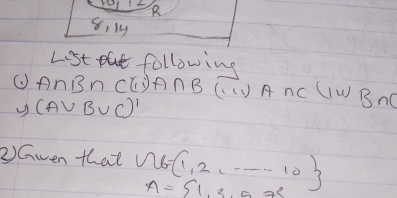 10, 12
R
8, 14
List following
(i) A∩B∩C (ii) A∩B (iii) A∩C (iv) B∩C
v) (A∪B∪C)'
2) Given that {1, 2, ---- 10}
A = {1, 3,